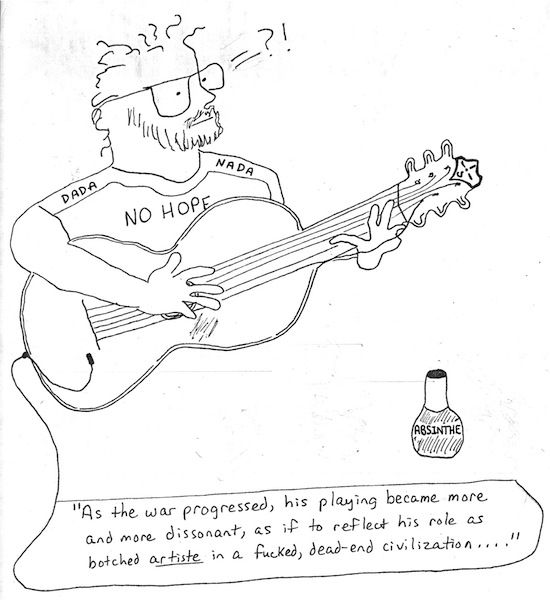 ?!
DADA
NADA
NO HOPE
ABSINTHE
"As the war progressed, his playing became more
and more dissonant, as if to reflect his role as
botched artiste in a fucked, dead-end civilization...."